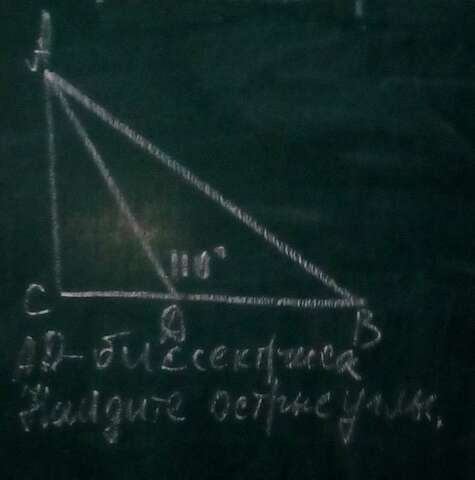 A
110°
C
D
B
AD - биссектриса
Найдите острые углы.